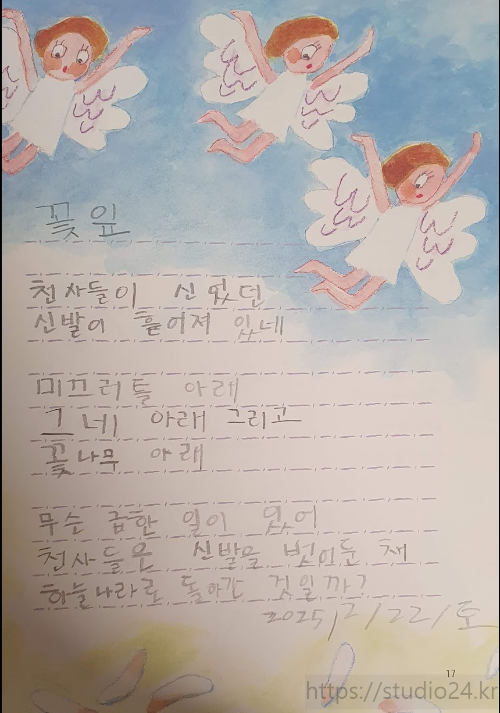 꽃잎
천사들이 신었던
신발이 흩어져 있네
미끄러틀 아래
그네 아래 그리고
꽃나무 아래
무슨 급한 일이 있어
천사들은 신발을 벗어둔 채
하늘나라로 돌아간 것일까?
2025/2/22/토
17
https://studio24.kr